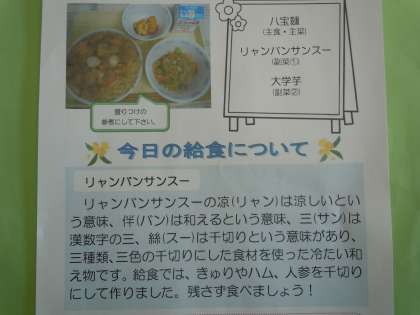 八宝麺
(主食・主菜)
リャンバンサンスー
(副菜①)
大学芋
(副菜②)
盛りつけの
参考にして下さい。
今日の給食について
リャンバンサンスー
リャンバンサンスーの凉(リャン)は涼しいとい
う意味、伴(バン)は和えるという意味、三(サン)は
漢数字の三、絲(スー)は千切りという意味があり、
三種類、三色の千切りにした食材を使った冷たい和
え物です。給食では、きゅりやハム、人参を千切り
にして作りました。残さず食べましょう！